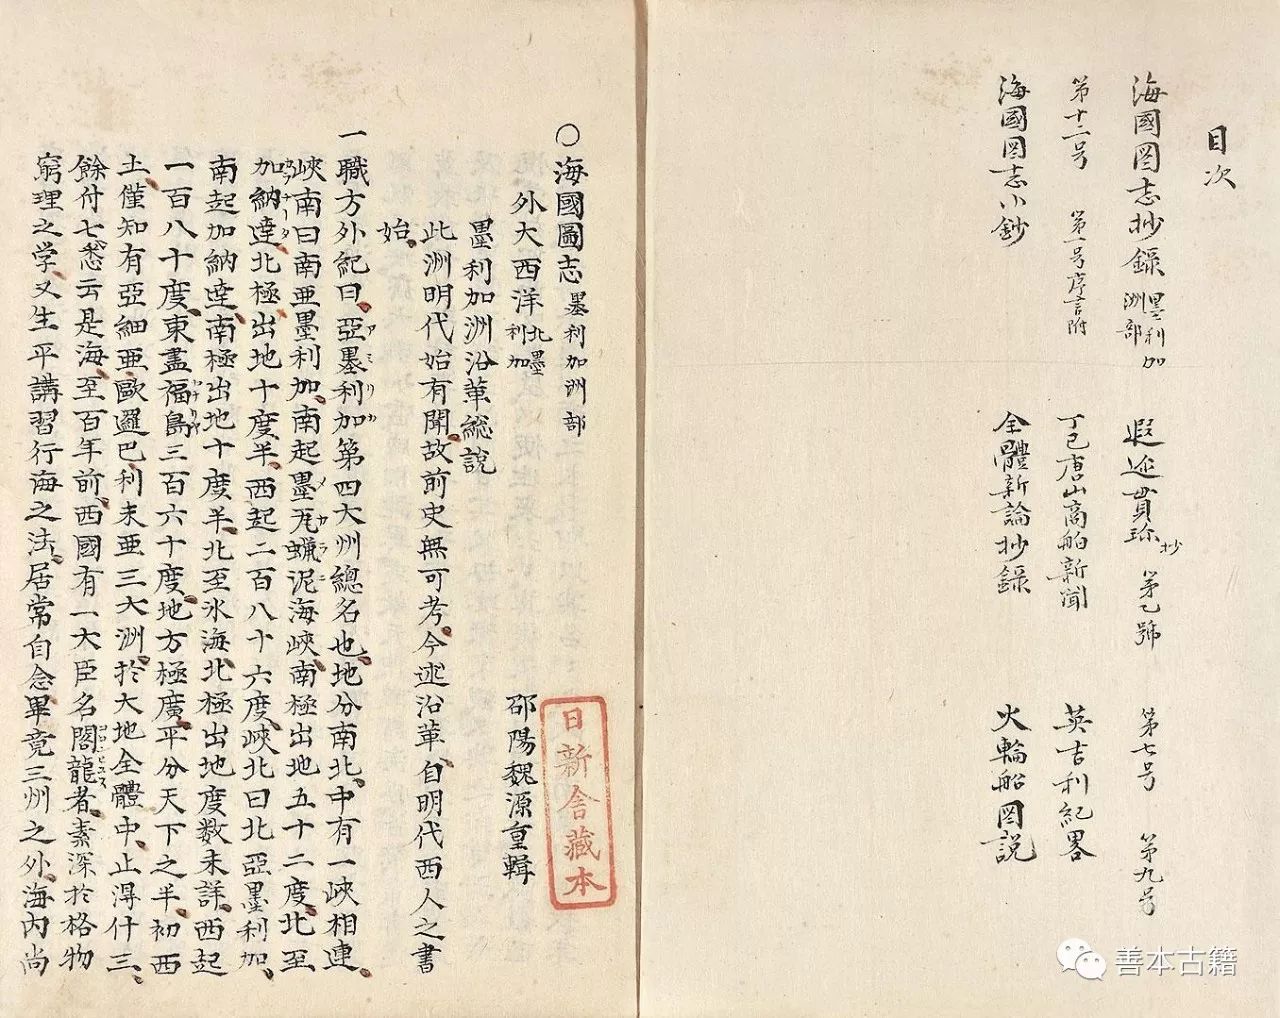 目次
海國図志抄録 墨利加洲部 遐迩貫珍抄 第乙號 第七号 第九号
第十二号 第一号序言附 丁巳唐山高舶新聞 英吉利紀畧
海國図志小鈔 全體新論抄録 火輪船図説
〇海國圖志 墨利加洲部
外大西洋 北墨利加 邵陽魏源重輯
墨利加洲沿革総説
此洲明代始有聞故前史無可考今述沿革自明代西人之書
始
一職方外紀曰亞墨利加第四大州總名也地分南北中有一峽相連
峽南曰南亜墨利加南起墨瓦蝋泥海峽南極出地五十二度北至
加納達北極出地十度半西起二百八十六度峽北曰北亞墨利加
南起加納達南極出地十度半北至氷海北極出地度数未詳西起
一百八十度東盡福島三百六十度地方極廣平分天下之半初西
土僅知有亞細亜歐邏巴利未亜三大洲於大地全體中止淂什三
餘付七悉云是海至百年前西國有一大臣名閣龍者素深於格物
窮理之学又生平講習行海之法居常自念畢竟三州之外海内尚
日新舎藏本
善本古籍